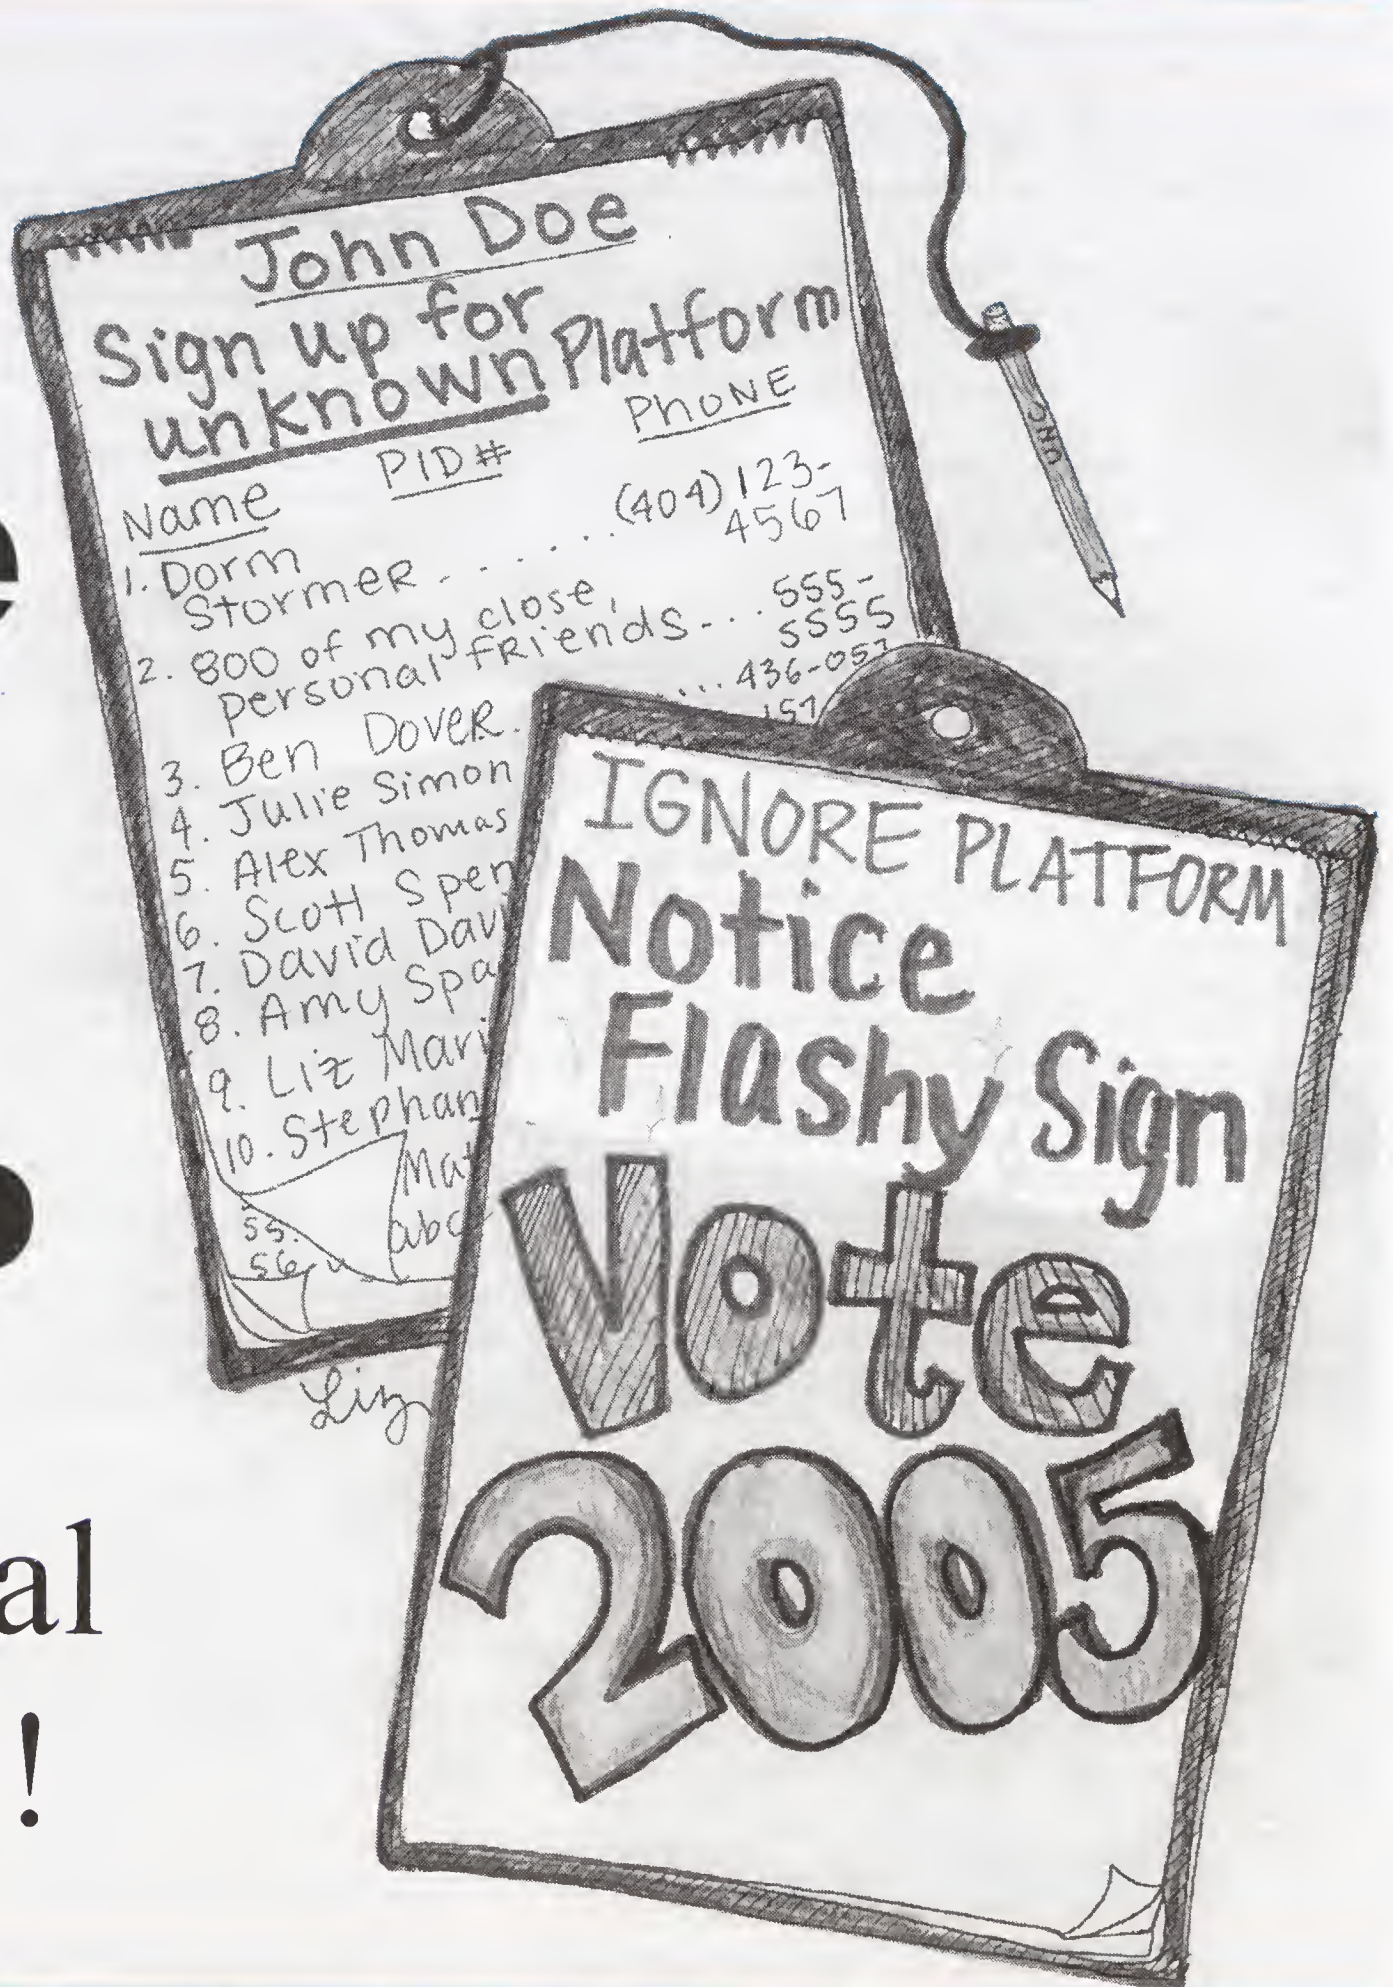 John Doe
Sign up for
unknown Platform
Name PID# PHONE
1. Dorm (404) 123-
Stormer . . . . . . 4567
2. 800 of my close, 555-
personal friends . . . 5555
3. Ben Dover. ... 436-05
4. Julie Simon 157
5. Alex Thomas
6. Scott Spen
7. David Dav
8. Amy Spa
9. Liz Mari
10. Stephan
Mat
abc
55.
56.
UNC
Liz
IGNORE PLATFORM
Notice
Flashy Sign
Vote
2005
e
al
!